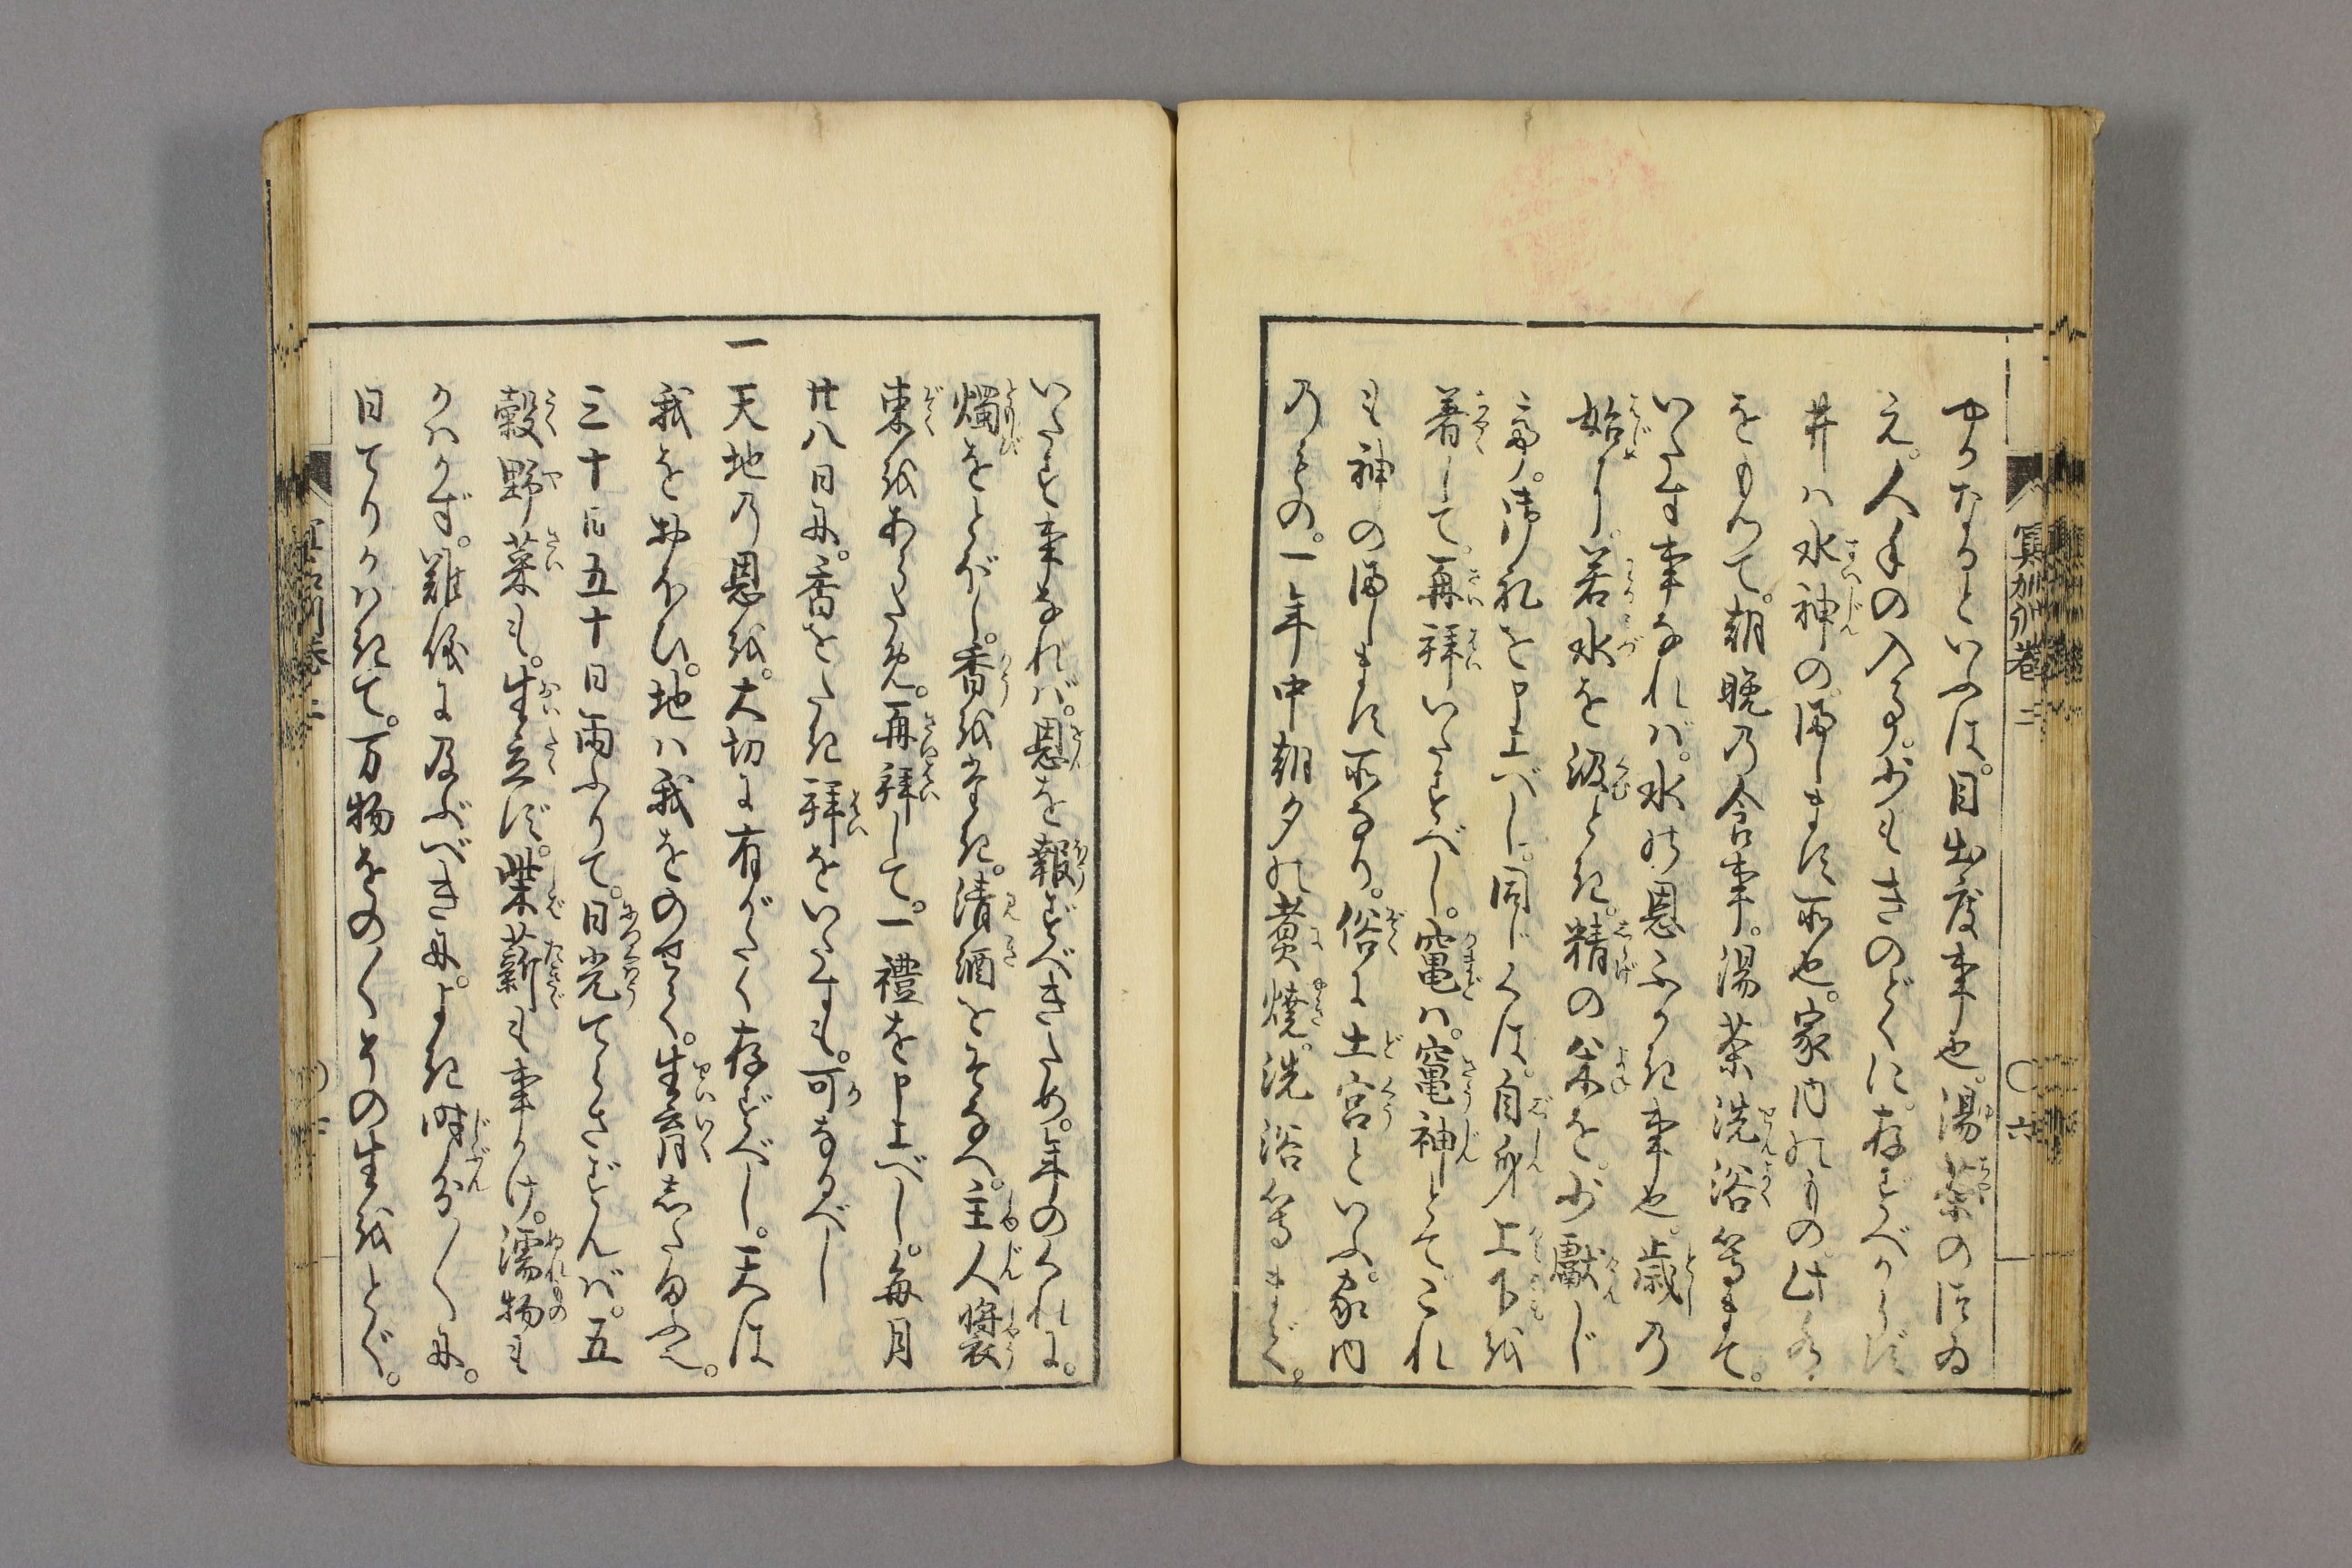 やかなるといふは。目出度事也。湯茶のついゐ
え。人手の入る事。少もきのどくに。存ずべからず
井ハ水神の御します所也。家内のもの此水
をもつて。朝晩の食事。湯茶洗浴等まて。
いたす事なれば。水の恩ふかき事也。歳の
始に。若水を汲とき。精の米を。少献じ
て。御礼を申上べし。同じくは。自身上下を
着して。再拝いたすべし。竃ハ。竃神とてこれ
も神の御します所なり。俗に土宮といふ。家内
のもの。一年中朝夕の煮焼。洗浴等まで。
冥加訓巻二
〇六
いたす事なれば。恩を報ずべきため。年のくれに。
燭をとぼし。香をたき。清酒をそなへ。主人裝
束をあらため。再拝して。一禮を申上べし。毎月
廿八日毎。香をたき拝をいたすも。可なるべし
一天地の恩を。大切に有がたく存ずべし。天は
我をおほひ。地ハ我をのせて。生育したまふ。
三十日五十日雨ふりて。日光てらさずんば。五
穀野菜も。生立ず。柴薪も事かけ。濡物も
かハかず。難儀に及ぶべき毎。よき時分〳〵毎。
日てりかハきて。万物をの〳〵その生をとぐ。